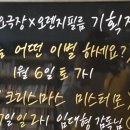 극장X오렌지필름 기획
어떤 이별 하세요?
1월 6일 토 7시
크리스마스 미스터 모
7일 일 2시 임대형 감독님